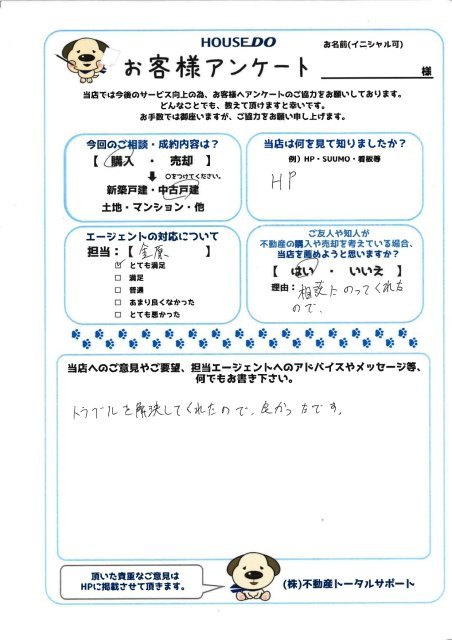 HOUSEDO
お客様アンケート
お名前(イニシャル可)
様
当店では今後のサービス向上の為、お客様へアンケートのご協力をお願いしております。
どんなことでも、教えて頂けますと幸いです。
お手数では御座いますが、ご協力をお願い申し上げます。
今回のご相談・成約内容は?
【 購入 ・ 売却 】
○をつけてください。
新築戸建・中古戸建
土地・マンション・他
当店は何を見て知りましたか?
例)HP・SUUMO・看板等
HP
エージェントの対応について
担当:【 金原 】
☑ とても満足
□ 満足
□ 普通
□ あまり良くなかった
□ とても悪かった
ご友人や知人が
不動産の購入や売却を考えている場合、
当店を薦めようと思いますか?
【 はい ・ いいえ 】
理由:相談にのってくれた
ので、
当店へのご意見やご要望、担当エージェントへのアドバイスやメッセージ等、
何でもお書き下さい。
トラブルを解決してくれたので、良かったです。
頂いた貴重なご意見は
HPに掲載させて頂きます。
(株)不動産トータルサポート